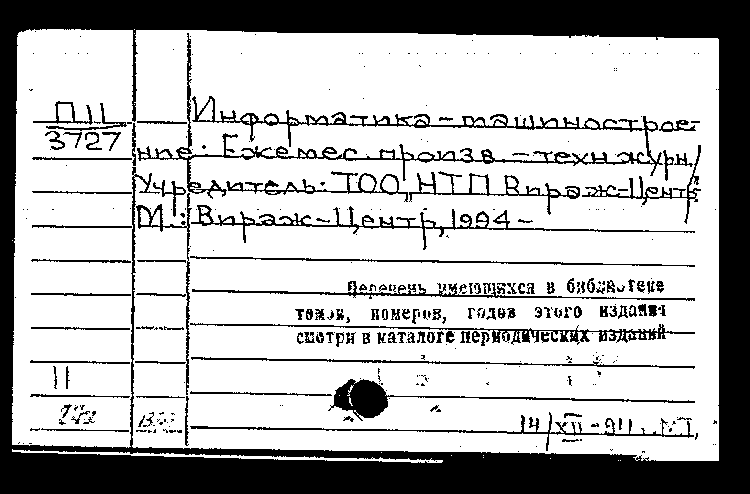 П 11
3727
Информатика - машинострое-
ние: Ежемес. произв. - техн. журн./
Учредитель: ТОО „НТП Вираж-Центр"
М.: Вираж-Центр, 1994 -
Перечень имеющихся в библиотеке
томов, номеров, годов этого издания
смотри в каталоге периодических изданий
11
14/XII - 94